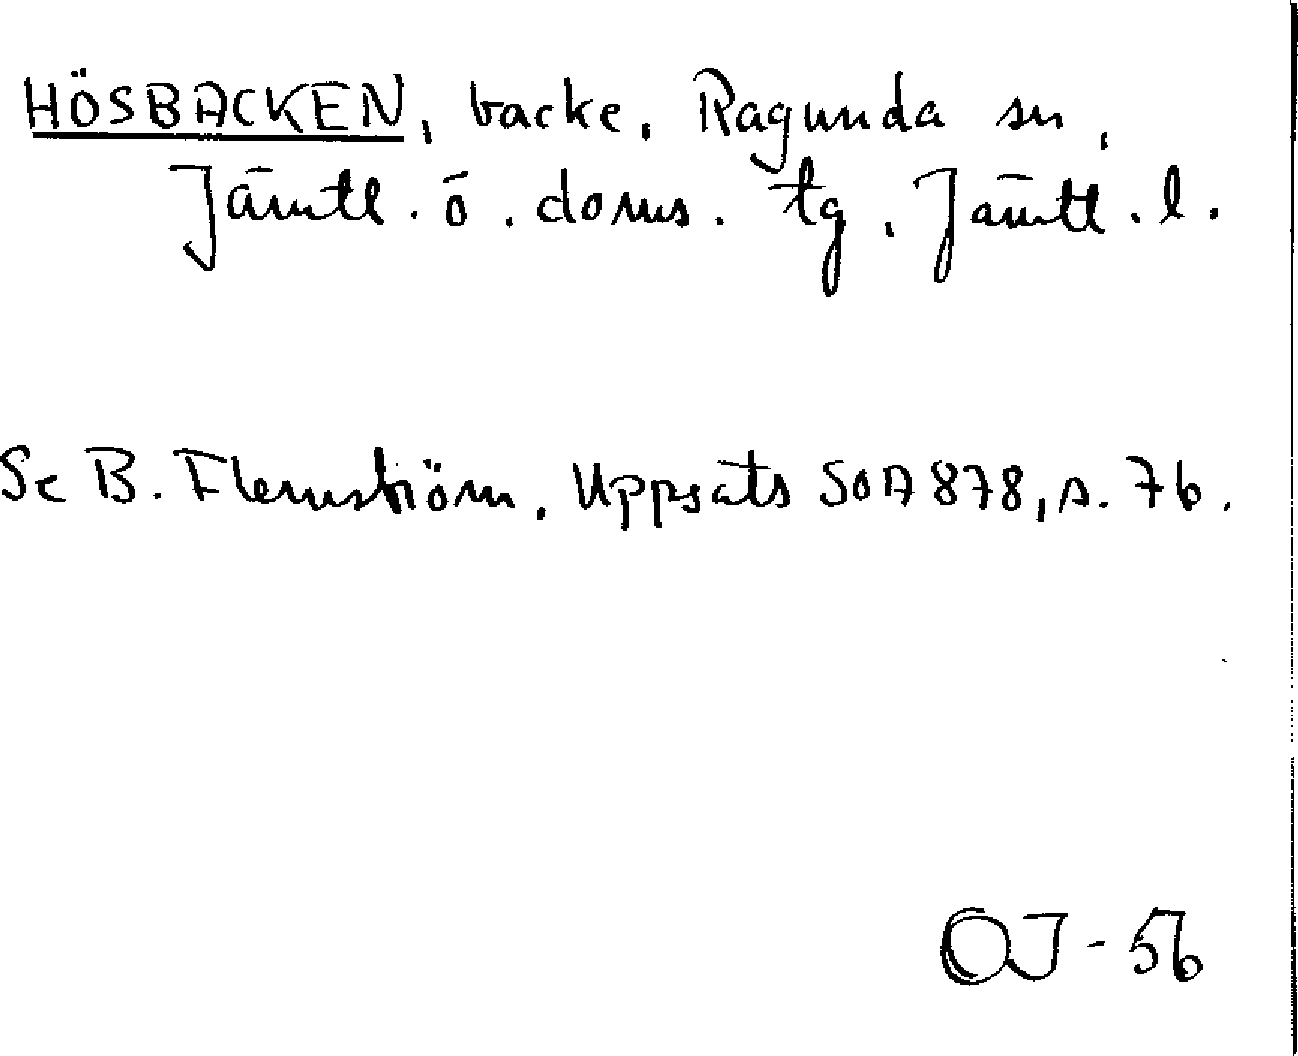 HÖSBACKEN, backe, Ragunda sn,
Jämtl. ö. doms. tg, Jämtl. l.
Se B. Flemström, Uppsats SOA 878, s. 76.
OJ-56